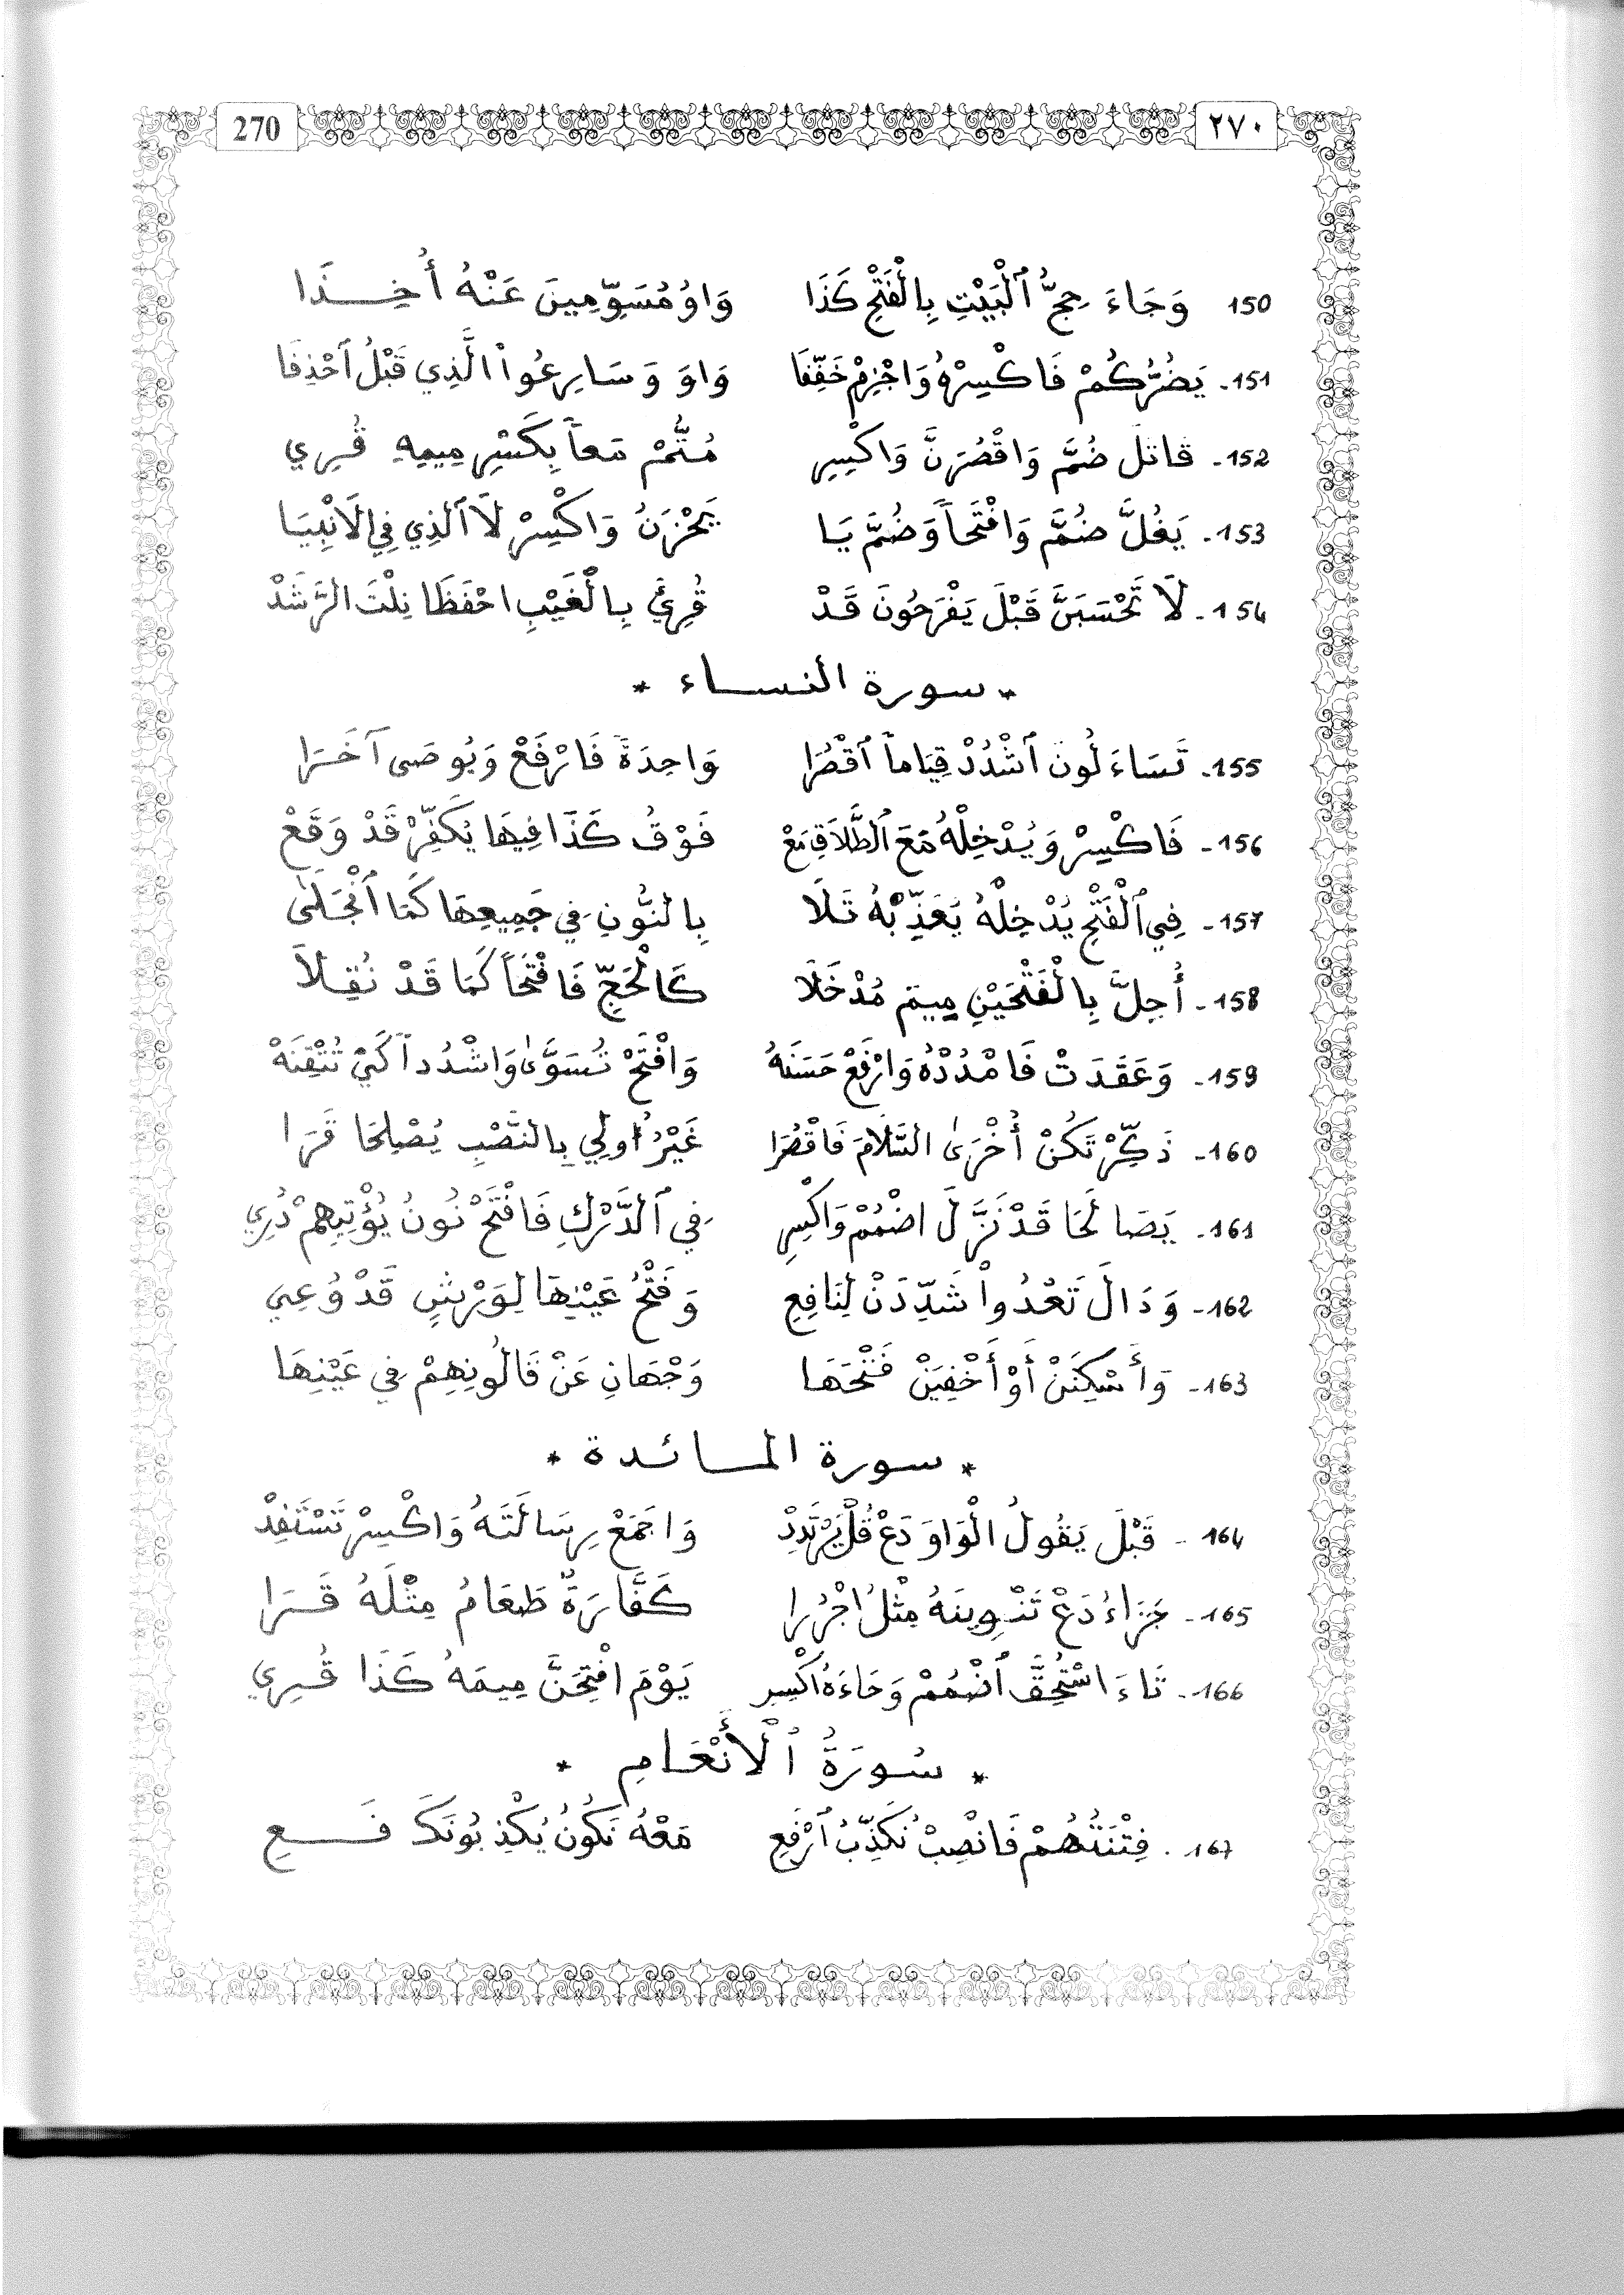 270 ٢٧٠
150 وَجَاءَ حِجُّ ٱلْبَيْتِ بِالْفَتْحِ كَذَا وَاوُ مُسَوِّمِينَ عَنْهُ أُخِـــذَا
151- يَضُرُّكُمْ فَاكْسِرْهُ وَاجْزِمْ خَفِّفَا وَاوَ وَسَارِعُواْ الَّذِي قَبْلُ ٱحْذِفَا
152- قَاتَلَ ضُمَّ وَاقْصُرَنَّ وَاكْسِرِ مُتُّمْ مَعاً بِكَسْرِ مِيمِهِ قُرِي
153- يَغُلَّ ضُمَّ وَافْتَحاً وَضُمَّ يَا يَحْزُنُ وَاكْسِرْ لَا ٱلَّذِي فِي الَانْبِيَا
154- لَا تَحْسَبَنَّ قَبْلَ يَفْرَحُونَ قَدْ قُرِئَ بِالْغَيْبِ احْفَظَا نِلْتَ الرَّشَدْ
* سورة النســاء *
155- تَسَاءَلُونَ ٱشْدُدْ قِيَاماً ٱقْصُرَا وَاحِدَةً فَارْفَعْ وَيُوصَى آخَــرَا
156- فَاكْسِرْ وَيُدْخِلْهُ مَعَ ٱلطَّلَاقِ مَعْ فَوْقُ كَذَا فِيهَا يُكَفِّرْ قَدْ وَقَعْ
157- فِي ٱلْفَتْحِ يُدْخِلْهُ يُعَذِّبْهُ تَلَا بِالنُّونِ فِي جَمِيعِهَا كَمَا ٱنْجَلَى
158- أُحِلَّ بِالْفَتْحَيْنِ مِيمَ مُدْخَلَا كَالْحَجِّ فَافْتَحاً كَمَا قَدْ نُقِـلَا
159- وَعَقَدَتْ فَامْدُدْهُ وَارْفَعْ حَسَنَهْ وَافْتَحْ تُسَوَّى وَاشْدُداً كَيْ تُتْقِنَهْ
160- ذَكِّرْ تَكُنْ أُخْرَى السَّلَامَ فَاقْصُرَا غَيْرُ أُولِي بِالنَّصْبِ يُصْلِحَا قَرَا
161- يَصَّالَحَا قَدْ نَزَّلَ اضْمُمْ وَاكْسِرِ فِي ٱلدَّرْكِ فَافْتَحْ نُونُ يُؤْتِيهِمْ دُرِي
162- وَدَالَ تَعْدُواْ شَدِّدَنْ لِنَافِعِ وَفَتْحُ عَيْنِهَا لِوَرْشٍ قَدْ وُعِي
163- وَأَسْكِنَنْ أَوْ أَخْفِيَنْ فَتْحَهَا وَجْهَانِ عَنْ قَالُونِهِمْ فِي عَيْنِهَا
* سورة المــائدة *
164- قَبْلَ يَقُولُ الْوَاوَ دَعْ قُلْ يَرْتَدِدْ وَاجْمَعْ رِسَالَتَهُ وَاكْسِرْ تَسْتَفِدْ
165- جَزَاءُ دَعْ تَنْوِينَهُ مِثْلُ اجْرُرَا كَفَّارَةٌ طَعَامُ مِثْلَهُ قَــرَا
166- تَاءَ اسْتُحِقَّ ٱضْمُمْ وَحَاءَهُ اكْسِرِ يَوْمَ افْتَحَنَّ مِيمَهُ كَذَا قُــرِي
* سُورَةُ ٱلْأَنْعَـامِ *
167- فِتْنَتُهُمْ فَانْصِبْ نُكَذِّبُ ٱرْفَعِ مَعْهُ نَكُونُ يُكْذِبُونَكَ فَــعِ